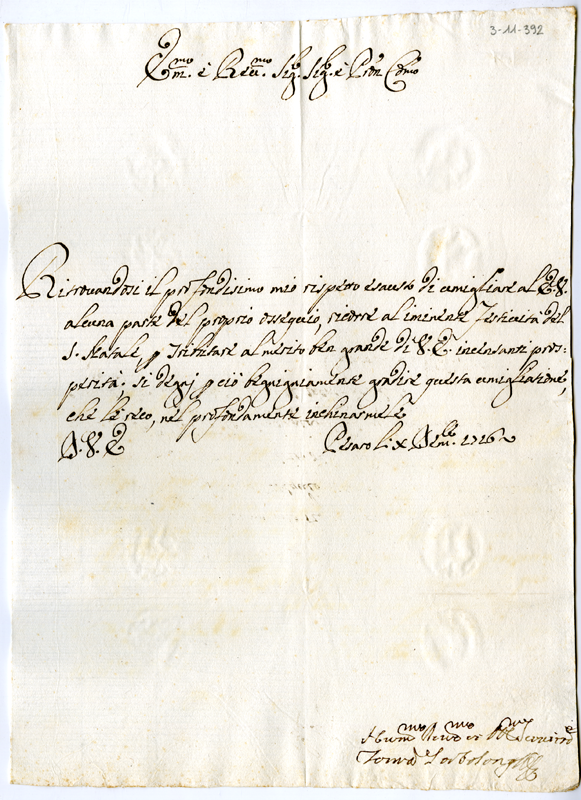 3-11-392
Em.mo e Reu.mo Sig. Sig. e Pron Co͠lmo
Ritrouandosi il profondissimo mio rispetto esausto di umigliare al E.V.
alcuna parte del proprio ossequio, ricorre al iminente Festiuità del
S. Natale, p tributare al merito ben grande di V. E. incensanti pros=
perità. Si degnj p ciò begnigniamente gradire questa umigliazione,
che le reco, nel profondamente inchinarmele
D. V. E
Pesaro li x Dem.bre 1726
Hum.mo Deuo.mo er Obl.mo Seruitre